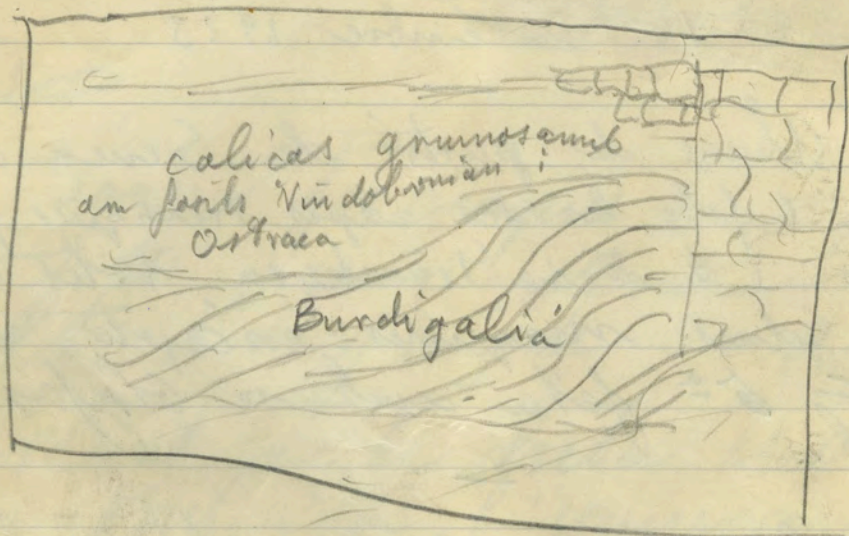 calicas grumosamb
am fosils Vindobonian i
Ostraea
Burdigalià